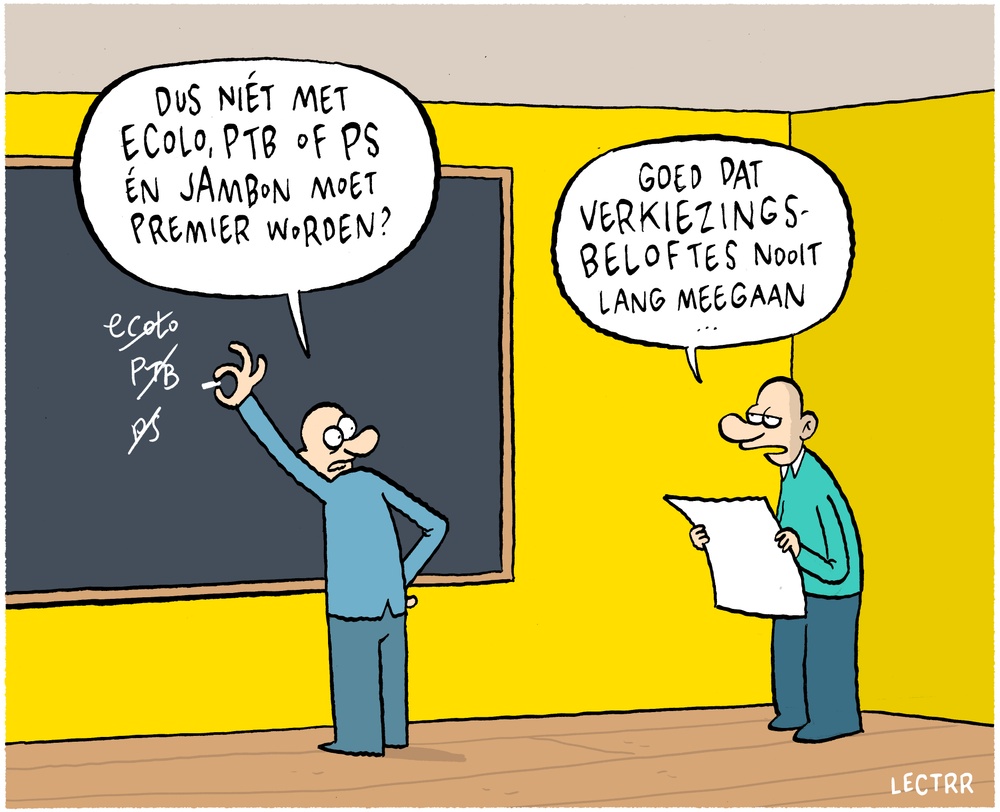 DUS NIÉT MET
ECOLO, PTB OF PS
ÉN JAMBON MOET
PREMIER WORDEN?
GOED DAT
VERKIEZINGS-
BELOFTES NOOIT
LANG MEEGAAN
...
ecolo
PTB
PS
LECTRR